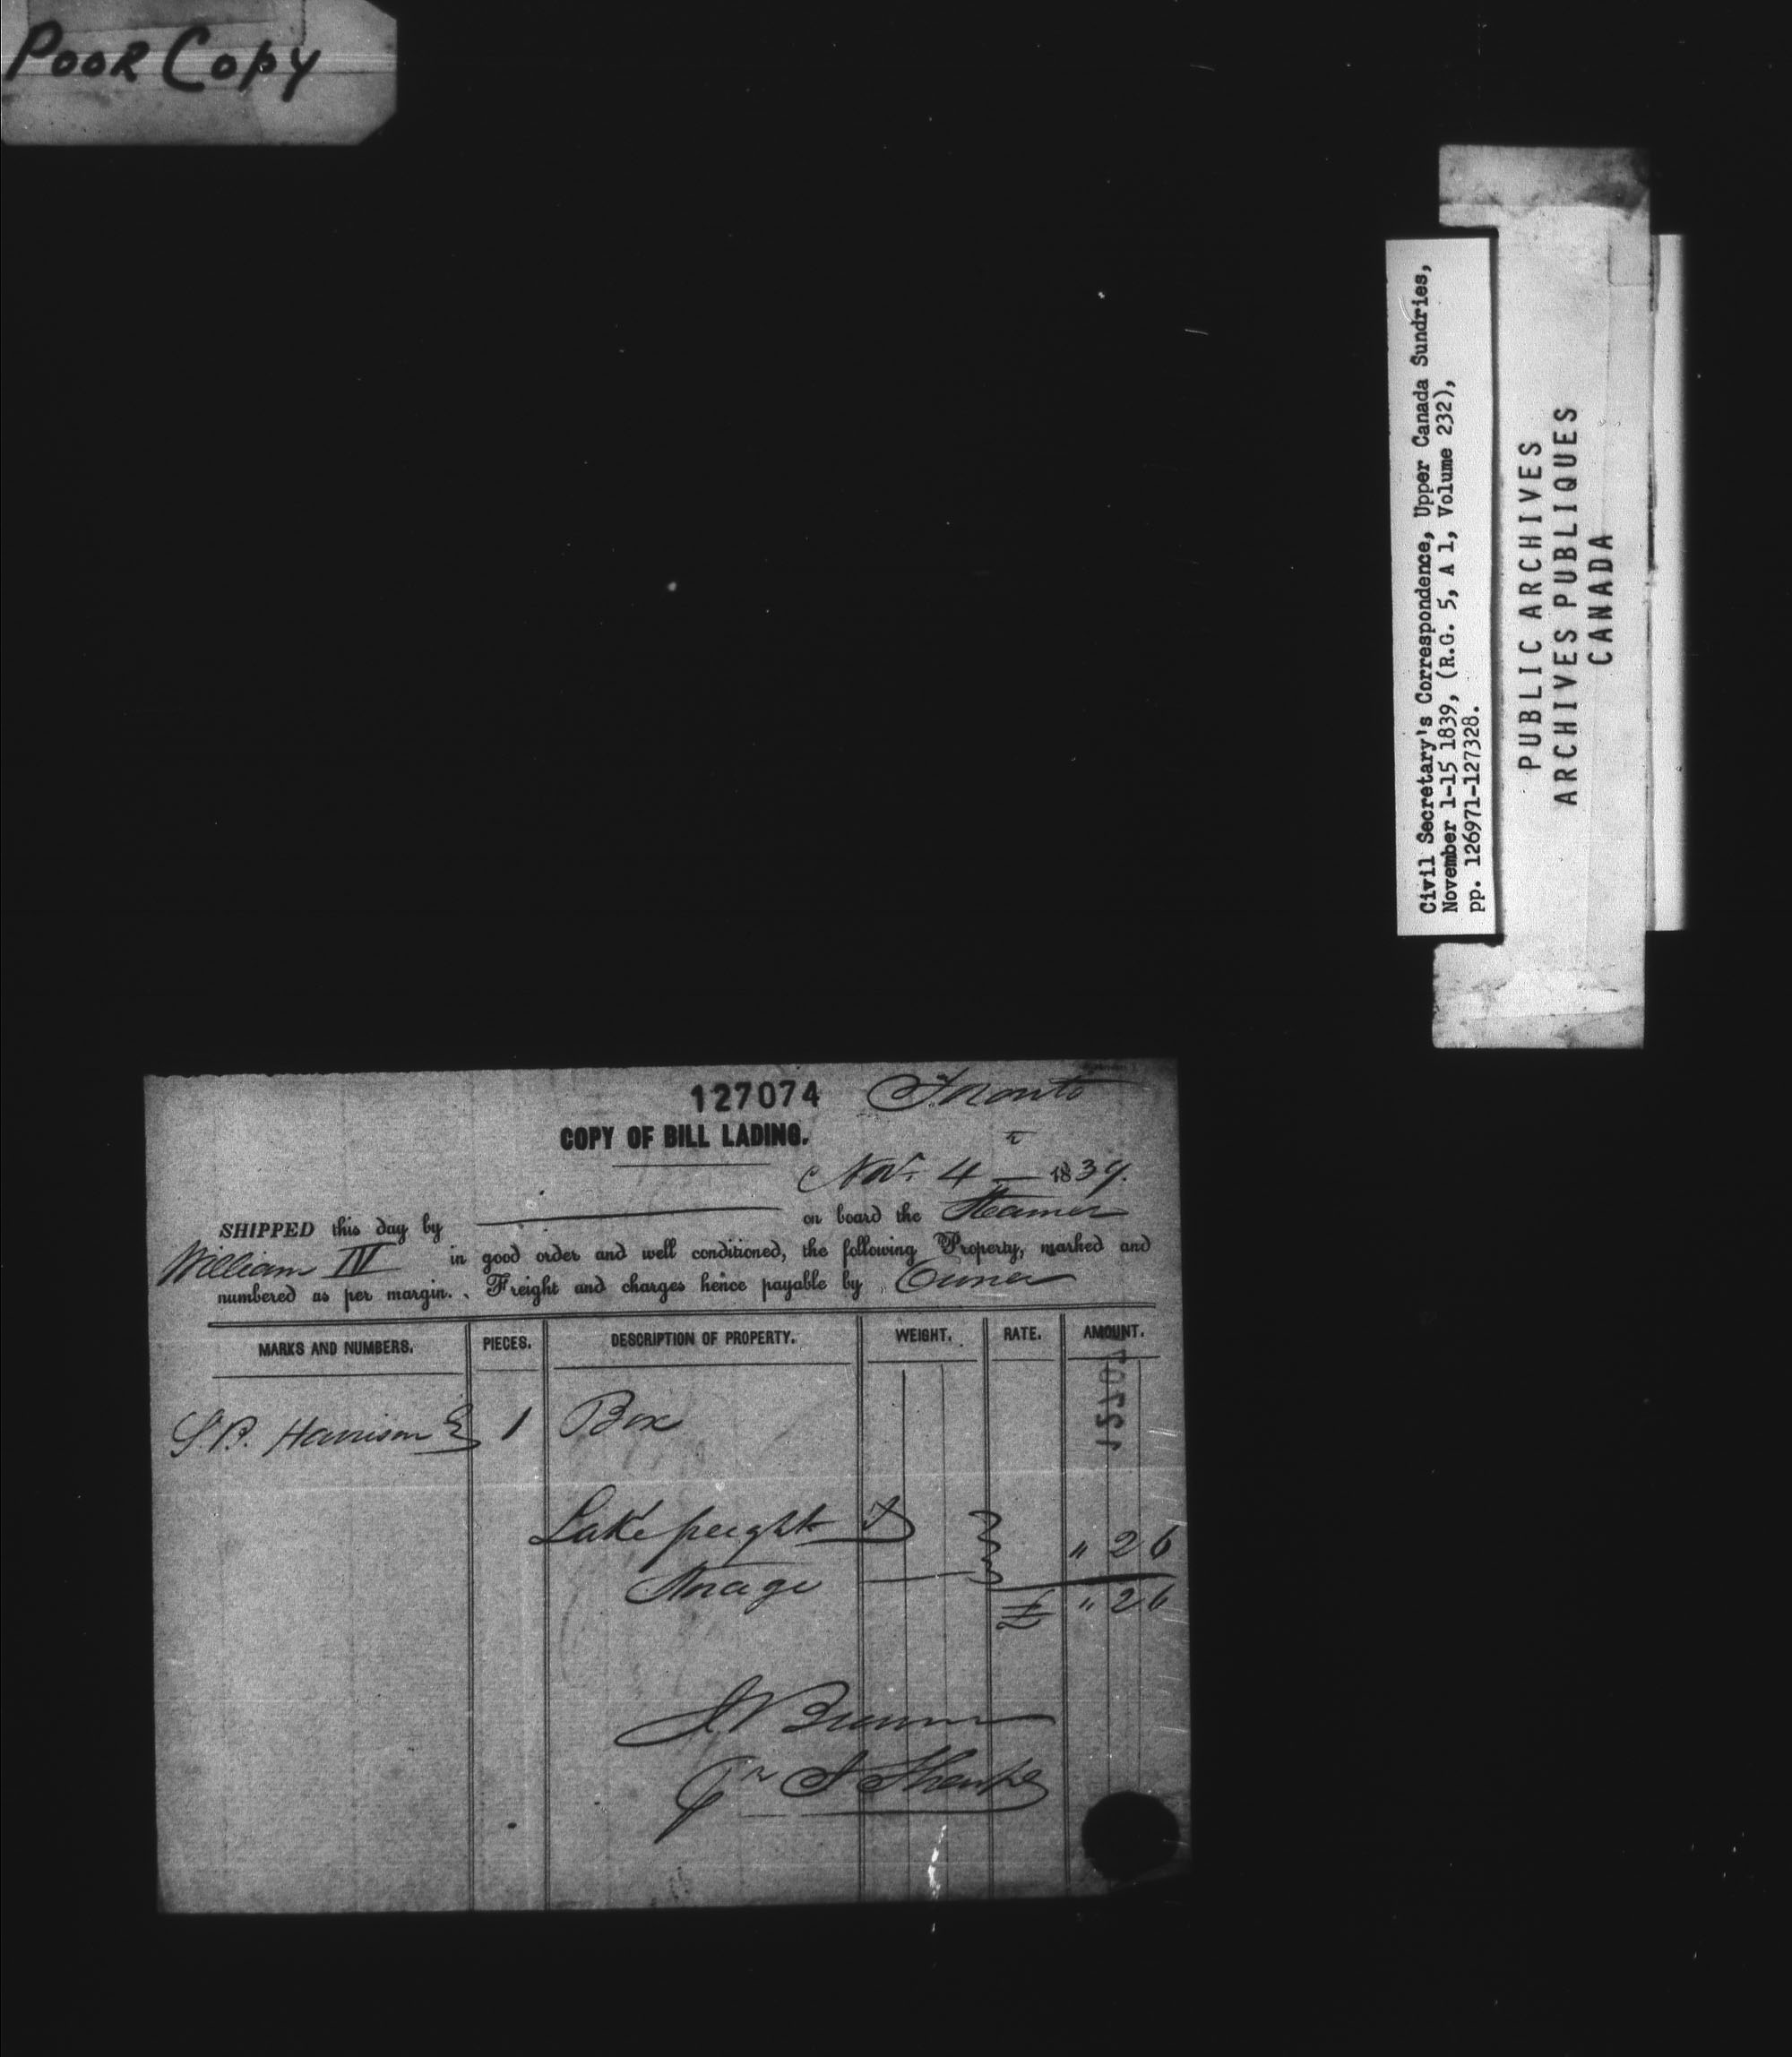 Poor Copy
Civil Secretary's Correspondence, Upper Canada Sundries,
November 1-15 1839, (R.G. 5, A 1, Volume 232),
pp. 126971-127328.
PUBLIC ARCHIVES
ARCHIVES PUBLIQUES
CANADA
127074 Toronto
COPY OF BILL LADING.
Nov. 4 — 1839.
SHIPPED this day by on board the Steamer
William IV in good order and well conditioned, the following Property, marked and
numbered as per margin. Freight and charges hence payable by Owner
MARKS AND NUMBERS. PIECES. DESCRIPTION OF PROPERTY. WEIGHT. RATE. AMOUNT.
S B. Harrison 1 Box
Lake freight " 2 6
Storage
£ " 2 6
Brown